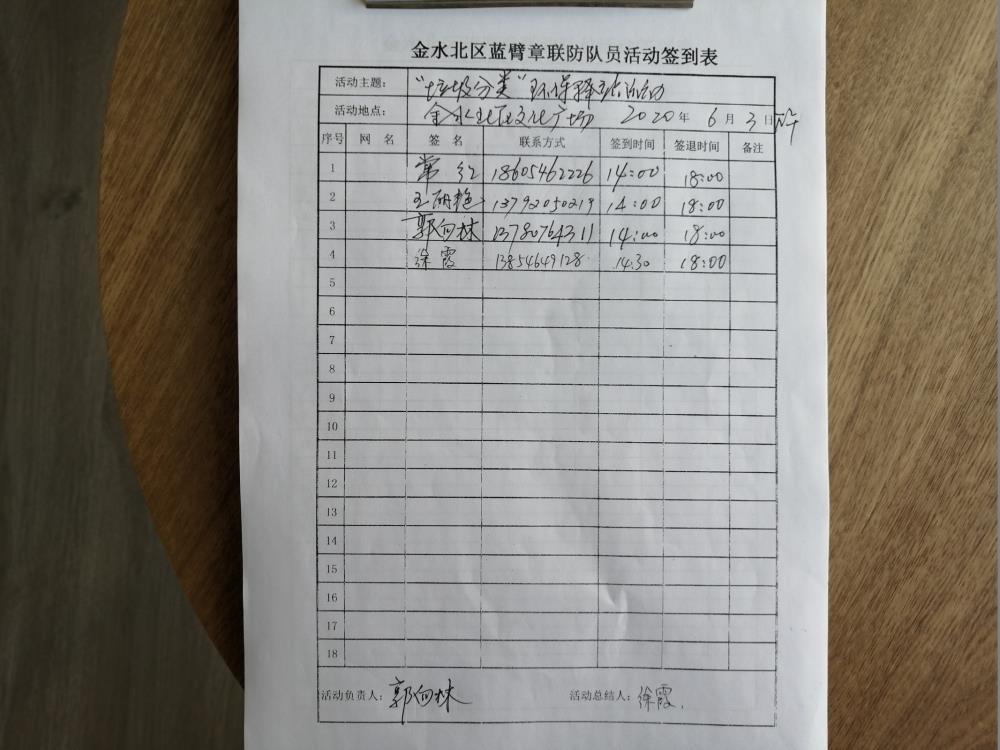 金水北区蓝臂章联防队员活动签到表
活动主题: “垃圾分类”环保驿站活动
活动地点: 金水北区文化广场 2020年 6月 3日 下午
序号 网 名 签 名 联系方式 签到时间 签退时间 备注
1 常红 18605462226 14:00 18:00
2 王丽艳 13792050219 14:00 18:00
3 郭向林 13780764311 14:00 18:00
4 徐霞 13854649128 14:30 18:00
5
6
7
8
9
10
11
12
13
14
15
16
17
18
活动负责人: 郭向林 活动总结人: 徐霞.